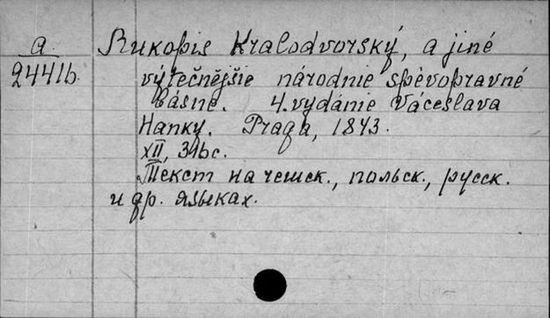 a
24416.
Rukopis Kralodvorský, a jiné
výtečnějšie národnie spěvopravné
básně. 4. vydánie Váceslava
Hanky. Praga, 1843.
XII, 316 с.
Текст на чешск., польск., русск.
и др. языках.